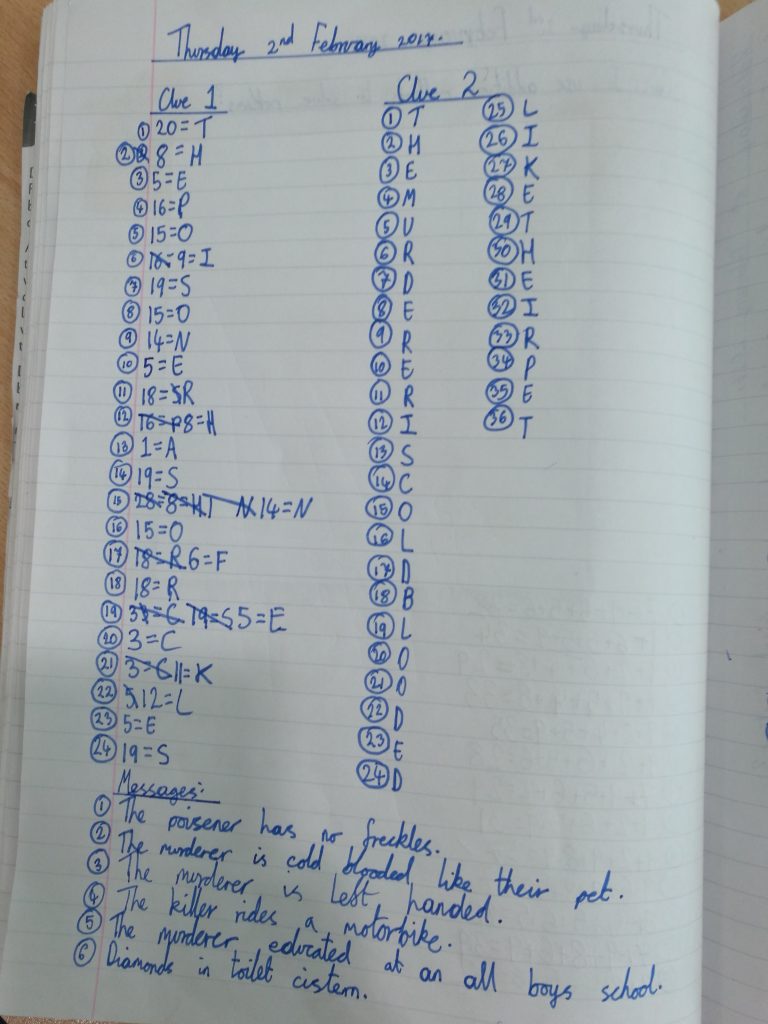 Thursday 2nd February 2017.
Clue 1
① 20 = T
② 8 = H
③ 5 = E
④ 16 = P
⑤ 15 = O
⑥ 9 = I
⑦ 19 = S
⑧ 15 = O
⑨ 14 = N
⑩ 5 = E
⑪ 18 = R
⑫ 8 = H
⑬ 1 = A
⑭ 19 = S
⑮ 14 = N
⑯ 15 = O
⑰ 6 = F
⑱ 18 = R
⑲ 5 = E
⑳ 3 = C
㉑ 11 = K
㉒ 12 = L
㉓ 5 = E
㉔ 19 = S
Clue 2
① T
② H
③ E
④ M
⑤ U
⑥ R
⑦ D
⑧ E
⑨ R
⑩ E
⑪ R
⑫ I
⑬ S
⑭ C
⑮ O
⑯ L
⑰ D
⑱ B
⑲ L
⑳ O
㉑ O
㉒ D
㉓ E
㉔ D
㉕ L
㉖ I
㉗ K
㉘ E
㉙ T
㉚ H
㉛ E
㉜ I
㉝ R
㉞ P
㉟ E
㊱ T
Messages:
① The poisener has no freckles.
② The murderer is cold blooded like their pet.
③ The murderer is left handed.
④ The killer rides a motorbike.
⑤ The murderer educated at an all boys school.
⑥ Diamonds in toilet cistern.